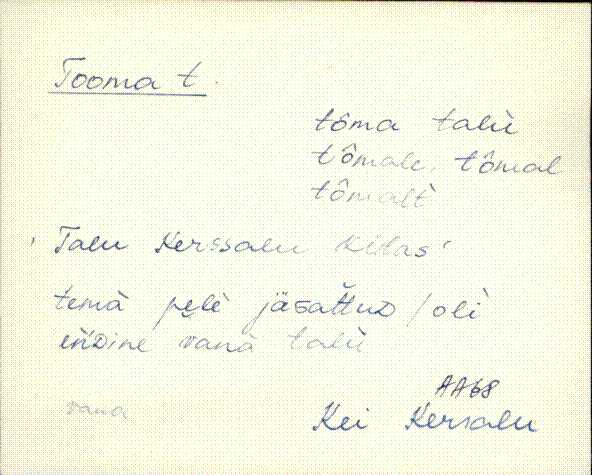 Tooma t.
tôma talu
tômale, tômal
tômalt
Talu Kerssalu külas
temä pεlε jäɢattuᴅ / oli
enᴅine vana talu
vana
AA68
Kei Kersalu